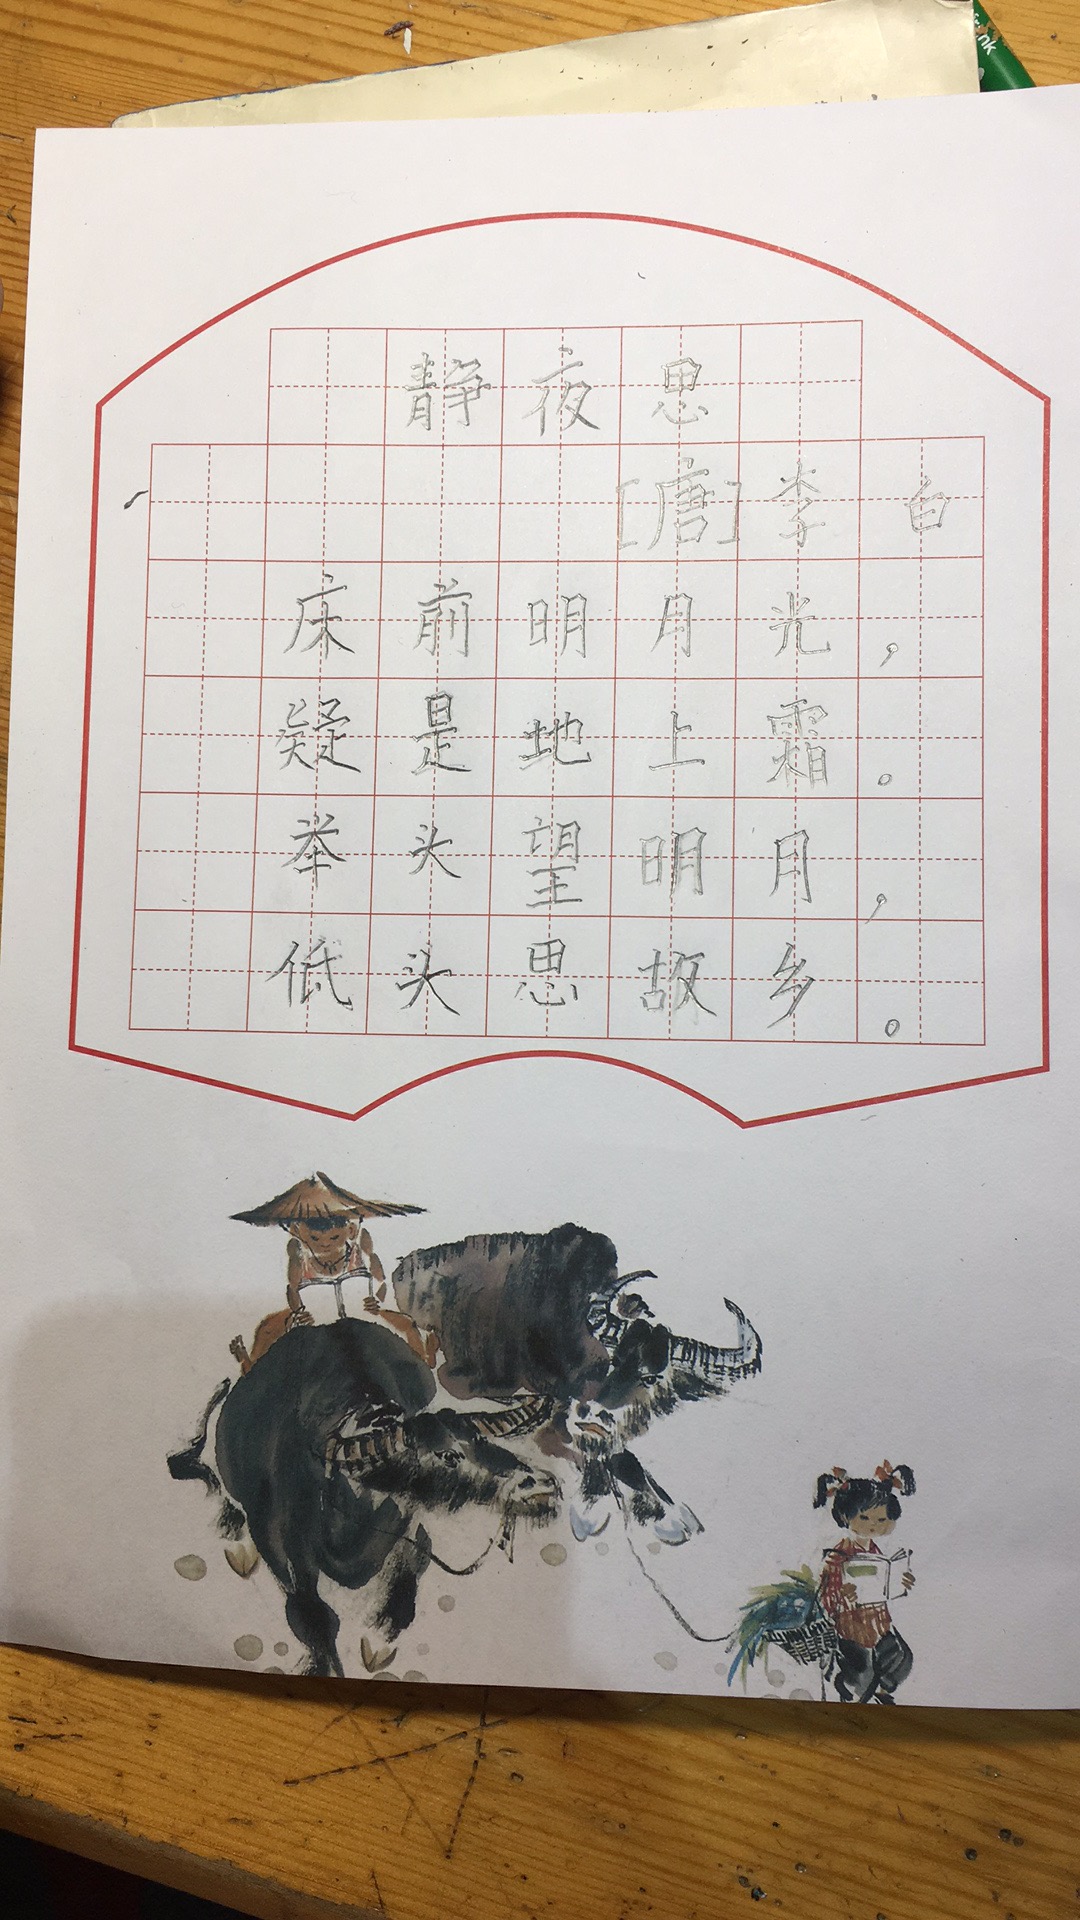 静夜思
[唐]李白
床前明月光，
疑是地上霜。
举头望明月，
低头思故乡。